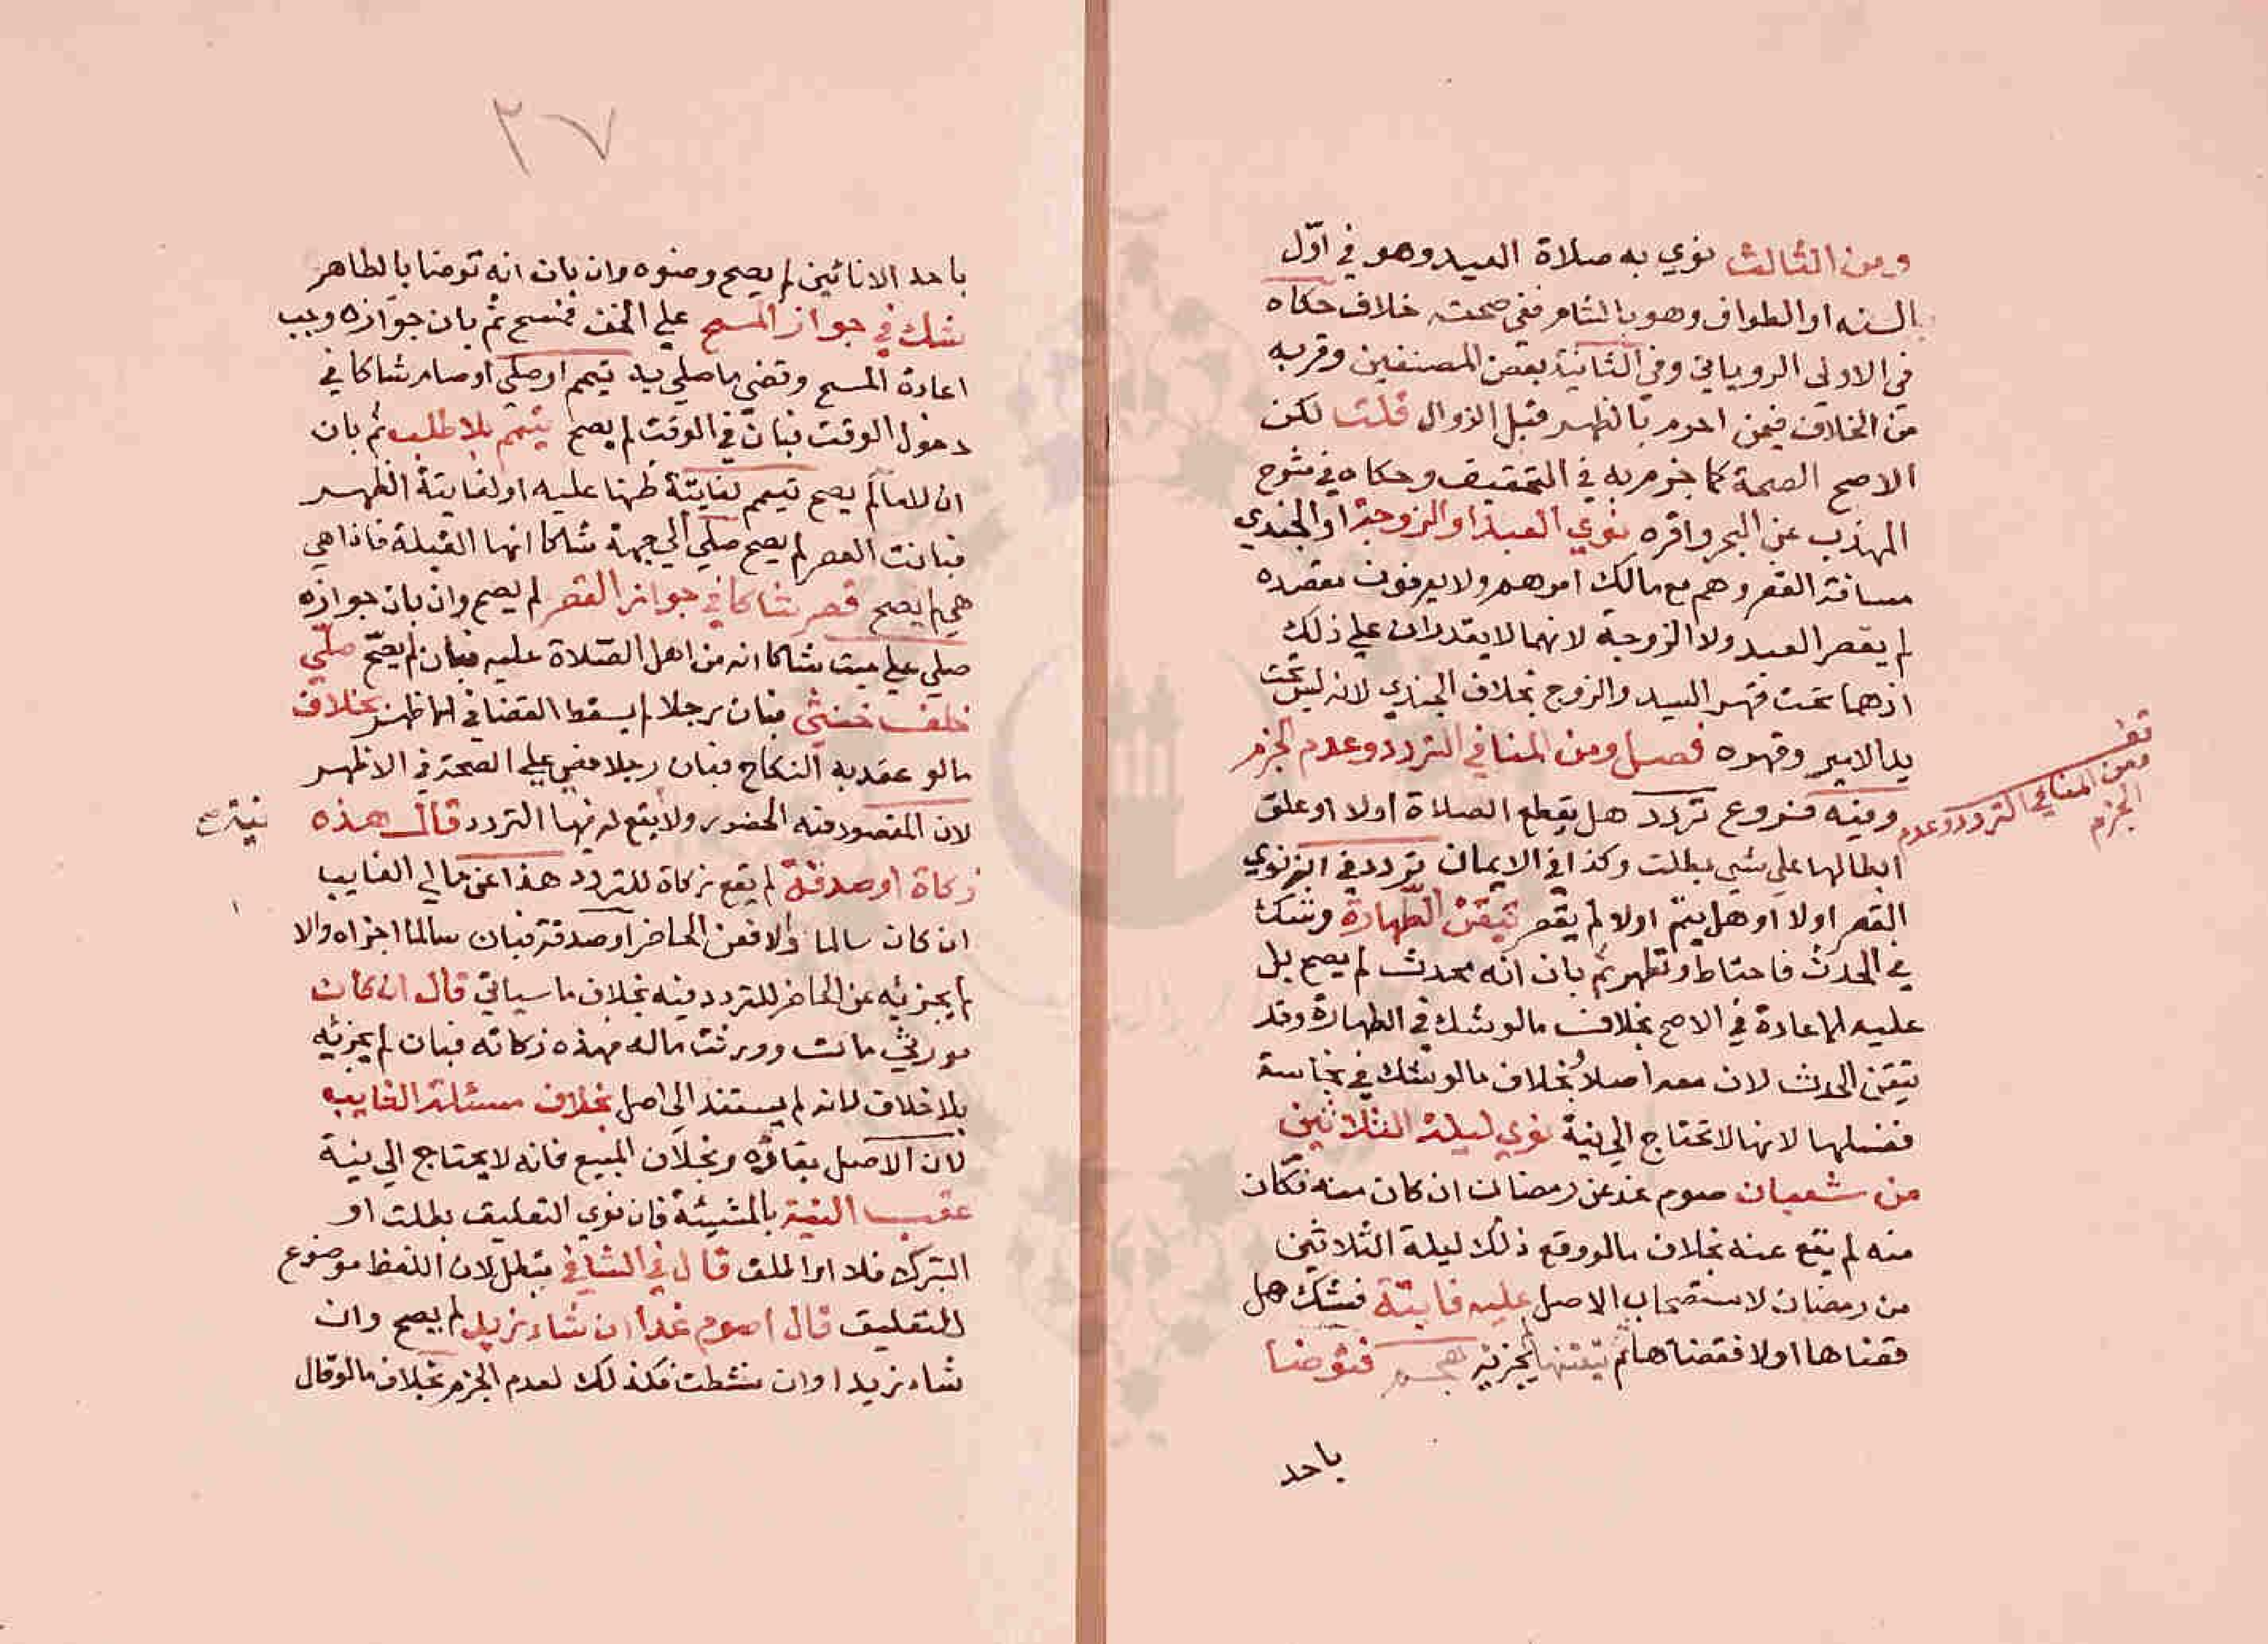 ومن الثالث نوي به صلاة العيد وهو في اوّل
السنه او الطواف وهو بالشام ففي صحته خلاف حكاه
في الاولي الروياني وفي الثانية بعض المصنفين وقربه
من الخلاف فيمن احرم بالظهر قبل الزوال قلت لكن
الاصح الصحة كما جزم به في التحقيق وحكاه في شرح
المهذب عن البحر واقره نوي العبد او الزوجة او الجندي
مسافة القصر وهم مع مالك امرهم ولا يعرفون مقصده
لم يقصر العبد ولا الزوجة لانهما لا يقدران علي ذلك
اذ هما تحت قهر السيد والزوج بخلاف الجندي لانه ليس تحت
يد الامير وقهره فصل ومن المنافي التردد وعدم الجزم
وفيه فروع تردد هل يقطع الصلاة اولا او علق
ابطالها علي شي بطلت وكذا في الايمان تردد في انه نوي
القصر اولا او هل يتم اولا لم يقصر تيقن الطهارة وشك
في الحدث فاحتاط وتطهر ثم بان انه محدث لم يصح بل
عليه الاعادة في الاصح بخلاف مالو شك في الطهارة وقد
تيقن الحدث لان معه اصلا بخلاف مالو شك في نجاسة
فغسلها لانها لا تحتاج الي نية نوي ليلة الثلاثين
من شعبان صوم غد عن رمضان ان كان منه فكان
منه لم يقع عنه بخلاف مالو وقع ذلك ليلة الثلاثين
من رمضان لاستصحاب الاصل عليه فايتة فشك هل
قضاها اولا فقضاها ثم تيقنها لم يجزئه هجم فتوضا
باحد
نظر
ومن المنافي التردد وعدم
الجزم
٢٧
باحد الانائين لم يصح وضوه وان بان انه توضا بالطاهر
شك في جواز المسح علي الخف فمسح ثم بان جوازه وجب
اعادة المسح وقضي ما صلي به تيمم او صلي او صام شاكا في
دخول الوقت فبان في الوقت لم يصح تيمم بلا طلب ثم بان
ان لا ما لم يصح تيمم لفايتة ظنها عليه او لفايتة الظهر
فبانت العصر لم يصح صلي الي جهة شاكا انها القبلة فاذا هي
هي لم يصح قصر شاكا في جواز القصر لم يصح وان بان جوازه
صلي علي ميت شاكا انه من اهل الصلاة عليه فبان لم يصح صلي
خلف خنثي فبان رجلا لم يسقط القضا في الاظهر بخلاف
مالو عقد به النكاح فبان رجلا مضي علي الصحة في الاظهر
لان المقصود فيه الحضور ولا يقع له فيها التردد قال هذه
نيته صح
زكاة او صدقة لم يقع زكاة للتردد هذا عن مالي الغايب
ان كان سالما والا فعن الحاضر او صدقة فبان سالما اجزاه والا
لم يجزئه عن الحاضر للتردد فيه بخلاف ما سياتي قال ان كان
مورثي مات وورثت ماله فهذه زكاته فبان لم يجزئه
بلا خلاف لانه لم يستند الي اصل بخلاف مسئلة الغايب
لان الاصل بقاؤه وبخلاف المبيع فانه لا يحتاج الي نية
عقب النية بالمشيئة فان نوي التعليق بطلت او
التبرك فلا او اطلق قال في الشافي تبطل لان اللفظ موضوع
للتعليق قال اصوم غدا ان شاء زيد لم يصح وان
شاء زيد او ان نشطت فكذلك لعدم الجزم بخلاف مالو قال